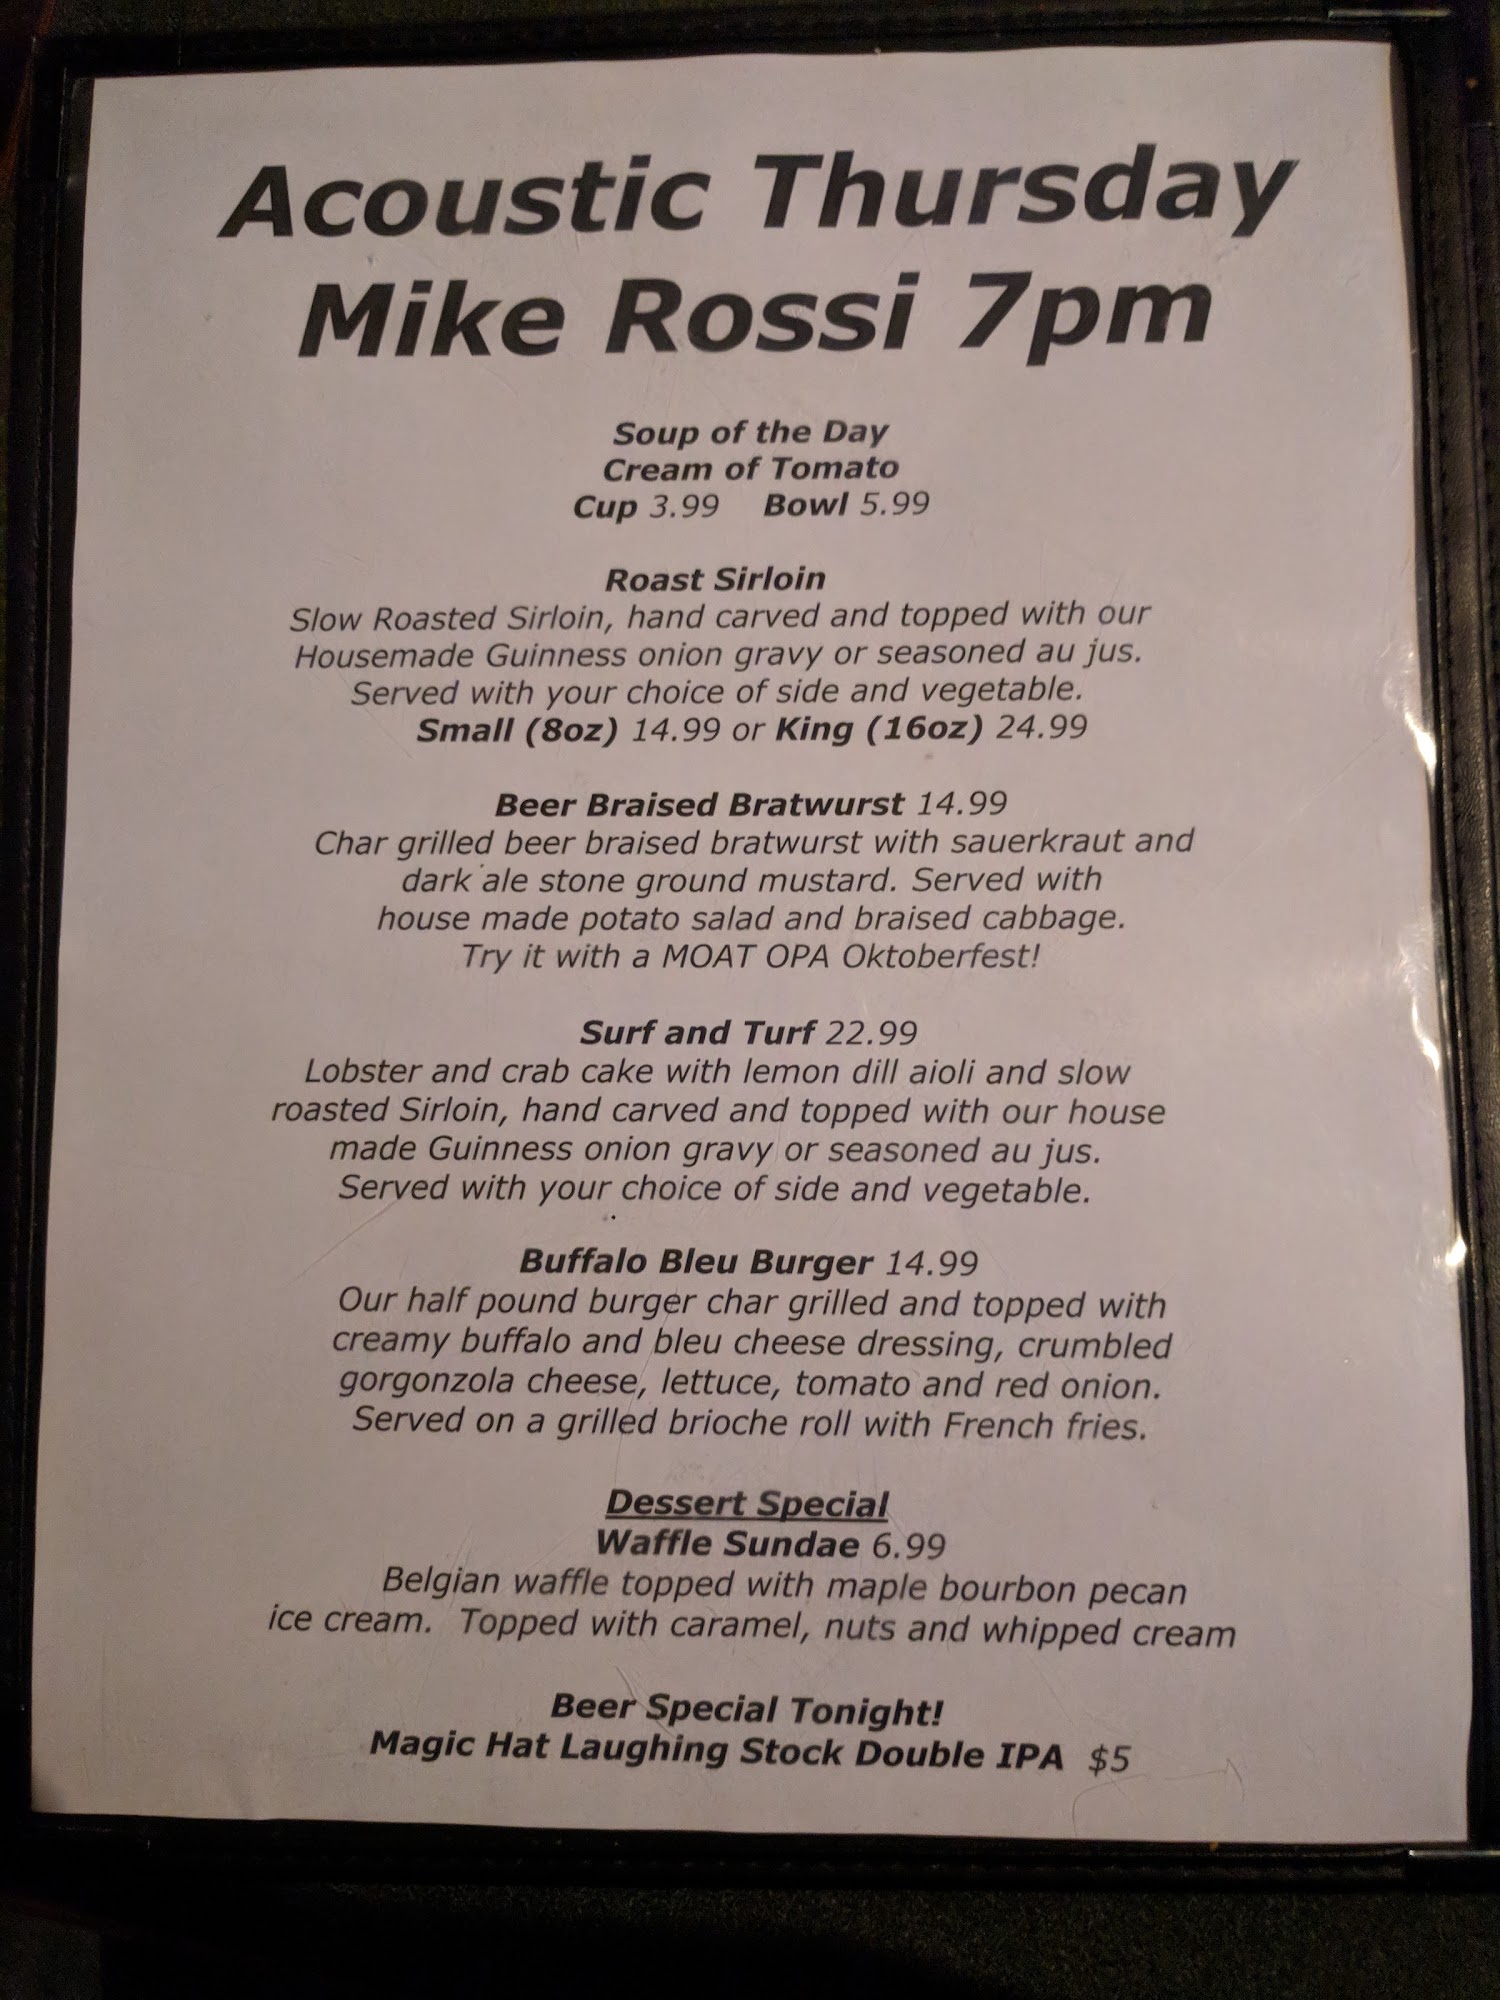 Acoustic Thursday
Mike Rossi 7pm
Soup of the Day
Cream of Tomato
Cup 3.99 Bowl 5.99
Roast Sirloin
Slow Roasted Sirloin, hand carved and topped with our
Housemade Guinness onion gravy or seasoned au jus.
Served with your choice of side and vegetable.
Small (8oz) 14.99 or King (16oz) 24.99
Beer Braised Bratwurst 14.99
Char grilled beer braised bratwurst with sauerkraut and
dark ale stone ground mustard. Served with
house made potato salad and braised cabbage.
Try it with a MOAT OPA Oktoberfest!
Surf and Turf 22.99
Lobster and crab cake with lemon dill aioli and slow
roasted Sirloin, hand carved and topped with our house
made Guinness onion gravy or seasoned au jus.
Served with your choice of side and vegetable.
Buffalo Bleu Burger 14.99
Our half pound burger char grilled and topped with
creamy buffalo and bleu cheese dressing, crumbled
gorgonzola cheese, lettuce, tomato and red onion.
Served on a grilled brioche roll with French fries.
Dessert Special
Waffle Sundae 6.99
Belgian waffle topped with maple bourbon pecan
ice cream. Topped with caramel, nuts and whipped cream
Beer Special Tonight!
Magic Hat Laughing Stock Double IPA $5